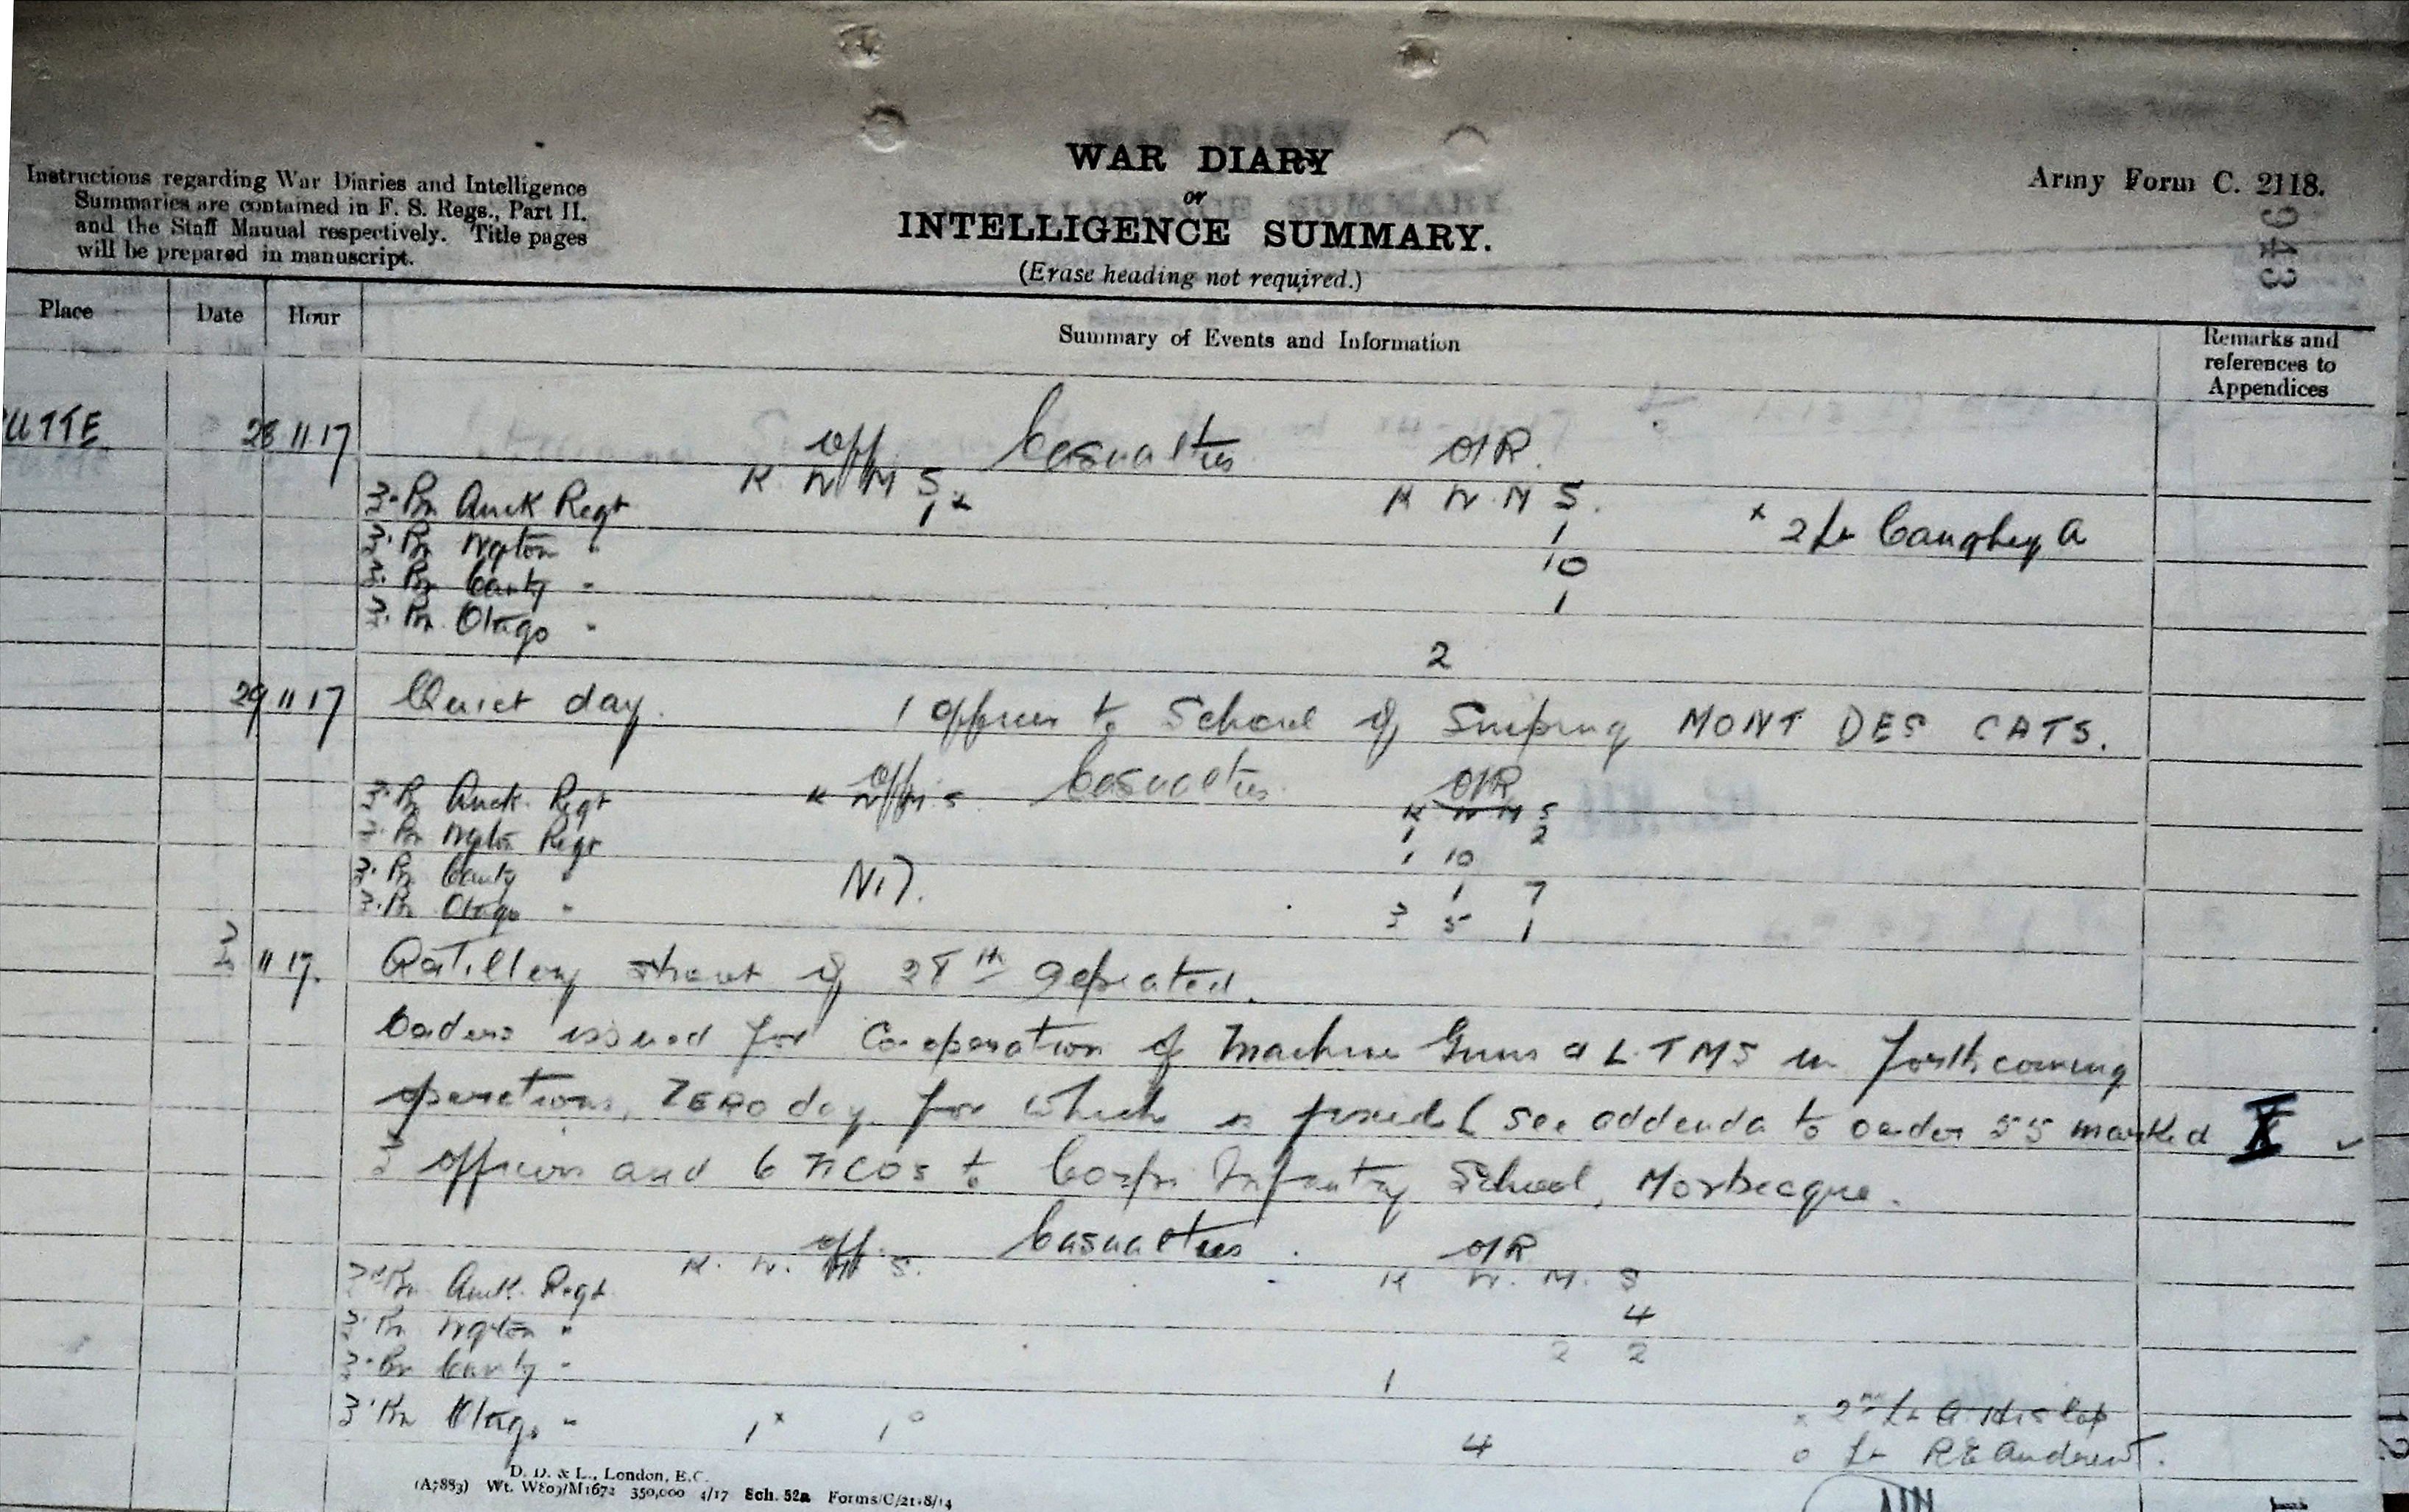 WAR DIARY
or
INTELLIGENCE SUMMARY.
(Erase heading not required.)
Instructions regarding War Diaries and Intelligence
Summaries are contained in F. S. Regs., Part II.
and the Staff Manual respectively. Title pages
will be prepared in manuscript.
Army Form C. 2118.
Place Date Hour Summary of Events and Information Remarks and references to Appendices
28 11 17 Off Casualties O/R.
K W M S K W M S.
3rd Bn Auck Regt 1 x 1 x 2/Lt Caughey A
3. Bn Wgton " 10
3. Bn Canty " 1
3. Bn Otago " 2
29 11 17 Quiet day. 1 officer to School of Sniping MONT DES CATS.
Off Casualties O/R
K W M S K W M S
3. Bn Auck. Regt 1 2
3. Bn Wgton Regt 1 10
3. Bn Canty " Nil. 1 7
3. Bn Otago " 3 5 1
11 17. Artillery shoot of 28th repeated.
Orders issued for Co-operation of Machine Guns & L.T.M S in forthcoming
operations, ZERO day for which is fixed (See addenda to order 55 marked X
3 officers and 6 NCOs to Corps Infantry School, Morbecque.
Off. Casualties. O/R
K. W. M S. K W. M. S
3rd Bn. Auck. Regt. 4
3. Bn Wgton " 2 2
3. Bn Canty " 1
3. Bn Otago " 1 x 1 o 4 x 2nd Lt A Hislop
o Lt R E Andrew.
D. D. & L., London, E.C.
(A7883) Wt. W809/M1672 350,000 4/17 Sch. 52a Forms/C/2118/14